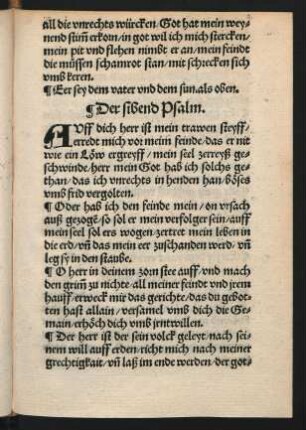 all die vnrechts würcken / Got hat mein wey-
nend stim̃ erkoñ / in got wil ich mich stercken /
mein pit vnd flehen nimbt er an / mein feindt
die müssen schamrot stan / mit schrecken sich
vmb keren.
¶ Eer sey dem vater vnd dem sun. als oben.
¶ Der sibend Psalm.
AVff dich herr ist mein trawen steyff /
erredt mich vor meim feinde / das er nit
wie ein Löw ergreyff / mein seel zerreyß ge-
schwinde / herr mein Got hab ich solchs ge-
than / das ich vnrecht in henden han / böses
vmb frid vergolten.
¶ Oder hab ich den feinde mein / on vrsach
auß gezogẽ / so sol er mein verfolger sein / auff
mein seel sol ers wogen / zertret mein leben in
die erd / vñ das mein eer zuschanden werd / vñ
leg sy in den staube.
¶ O herr in deinem zorn stee auff / vnd mach
den grim̃ zu nichte / all meiner feindt vnd jrem
hauff / erweck mir das gerichte / das du gebot-
ten hast allain / versamel vmb dich die Ge-
main / erhöch dich vmb jrntwillen.
¶ Der herr ist der sein volck geleyt / nach sei-
nem will auff erden / richt mich nach meiner
grechtigkait / vñ laß im ende werden / der got-